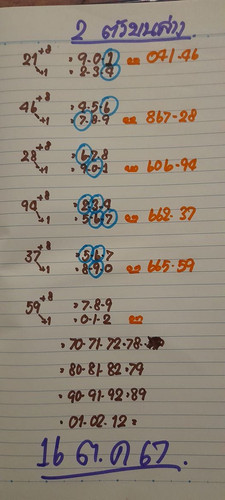 2 ตัวบนล่าง
21 +8 = 9.0.1 = 041.46
+1 = 2.3.4
46 +8 = 4.5.6 = 867-28
+1 = 7.8.9
28 +8 = 6.7.8 = 606-94
+1 = 9.0.1
94 +8 = 2.3.4 = 662.37
+1 = 5.6.7
37 +8 = 5.6.7 = 665.59
+1 = 8.9.0
59 +8 = 7.8.9
+1 = 0.1.2 =
= 70.71.72.78.
= 80.81.82.79
= 90.91.92.89
= 01.02.12 =
16 ต.ค 67.